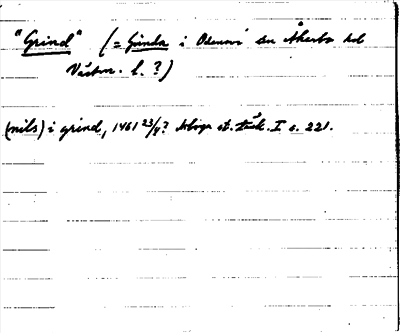 "Grind" (= Grinda i Odensvi sn Åkerbo hd
Västm. l. ?)
(nils) i grind, 1461 23/8? Arboga st. tänk. I s. 221.